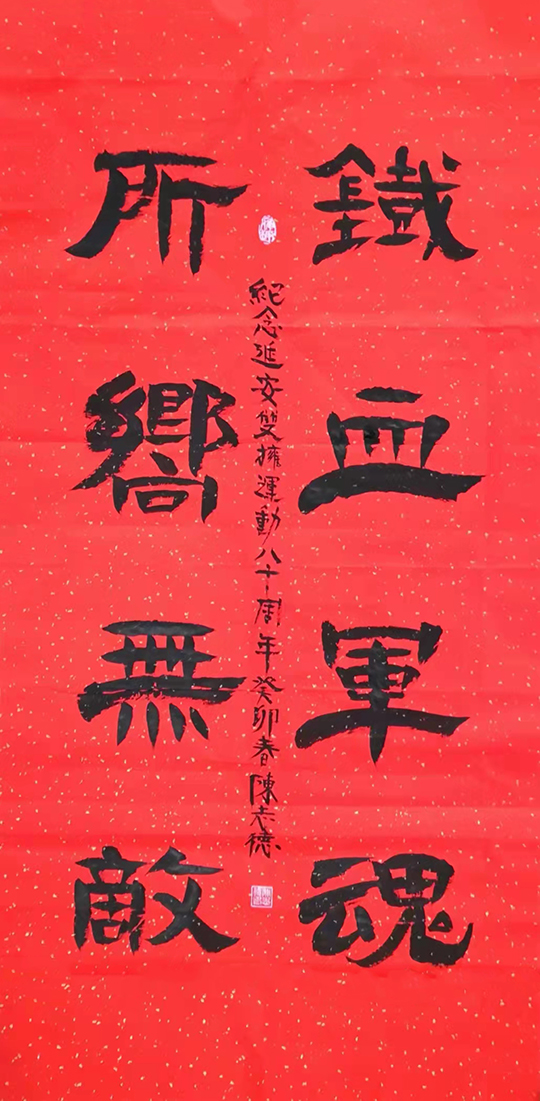 鐵血軍魂
所嚮無敵
紀念延安雙擁運動八十周年癸卯春陳志德